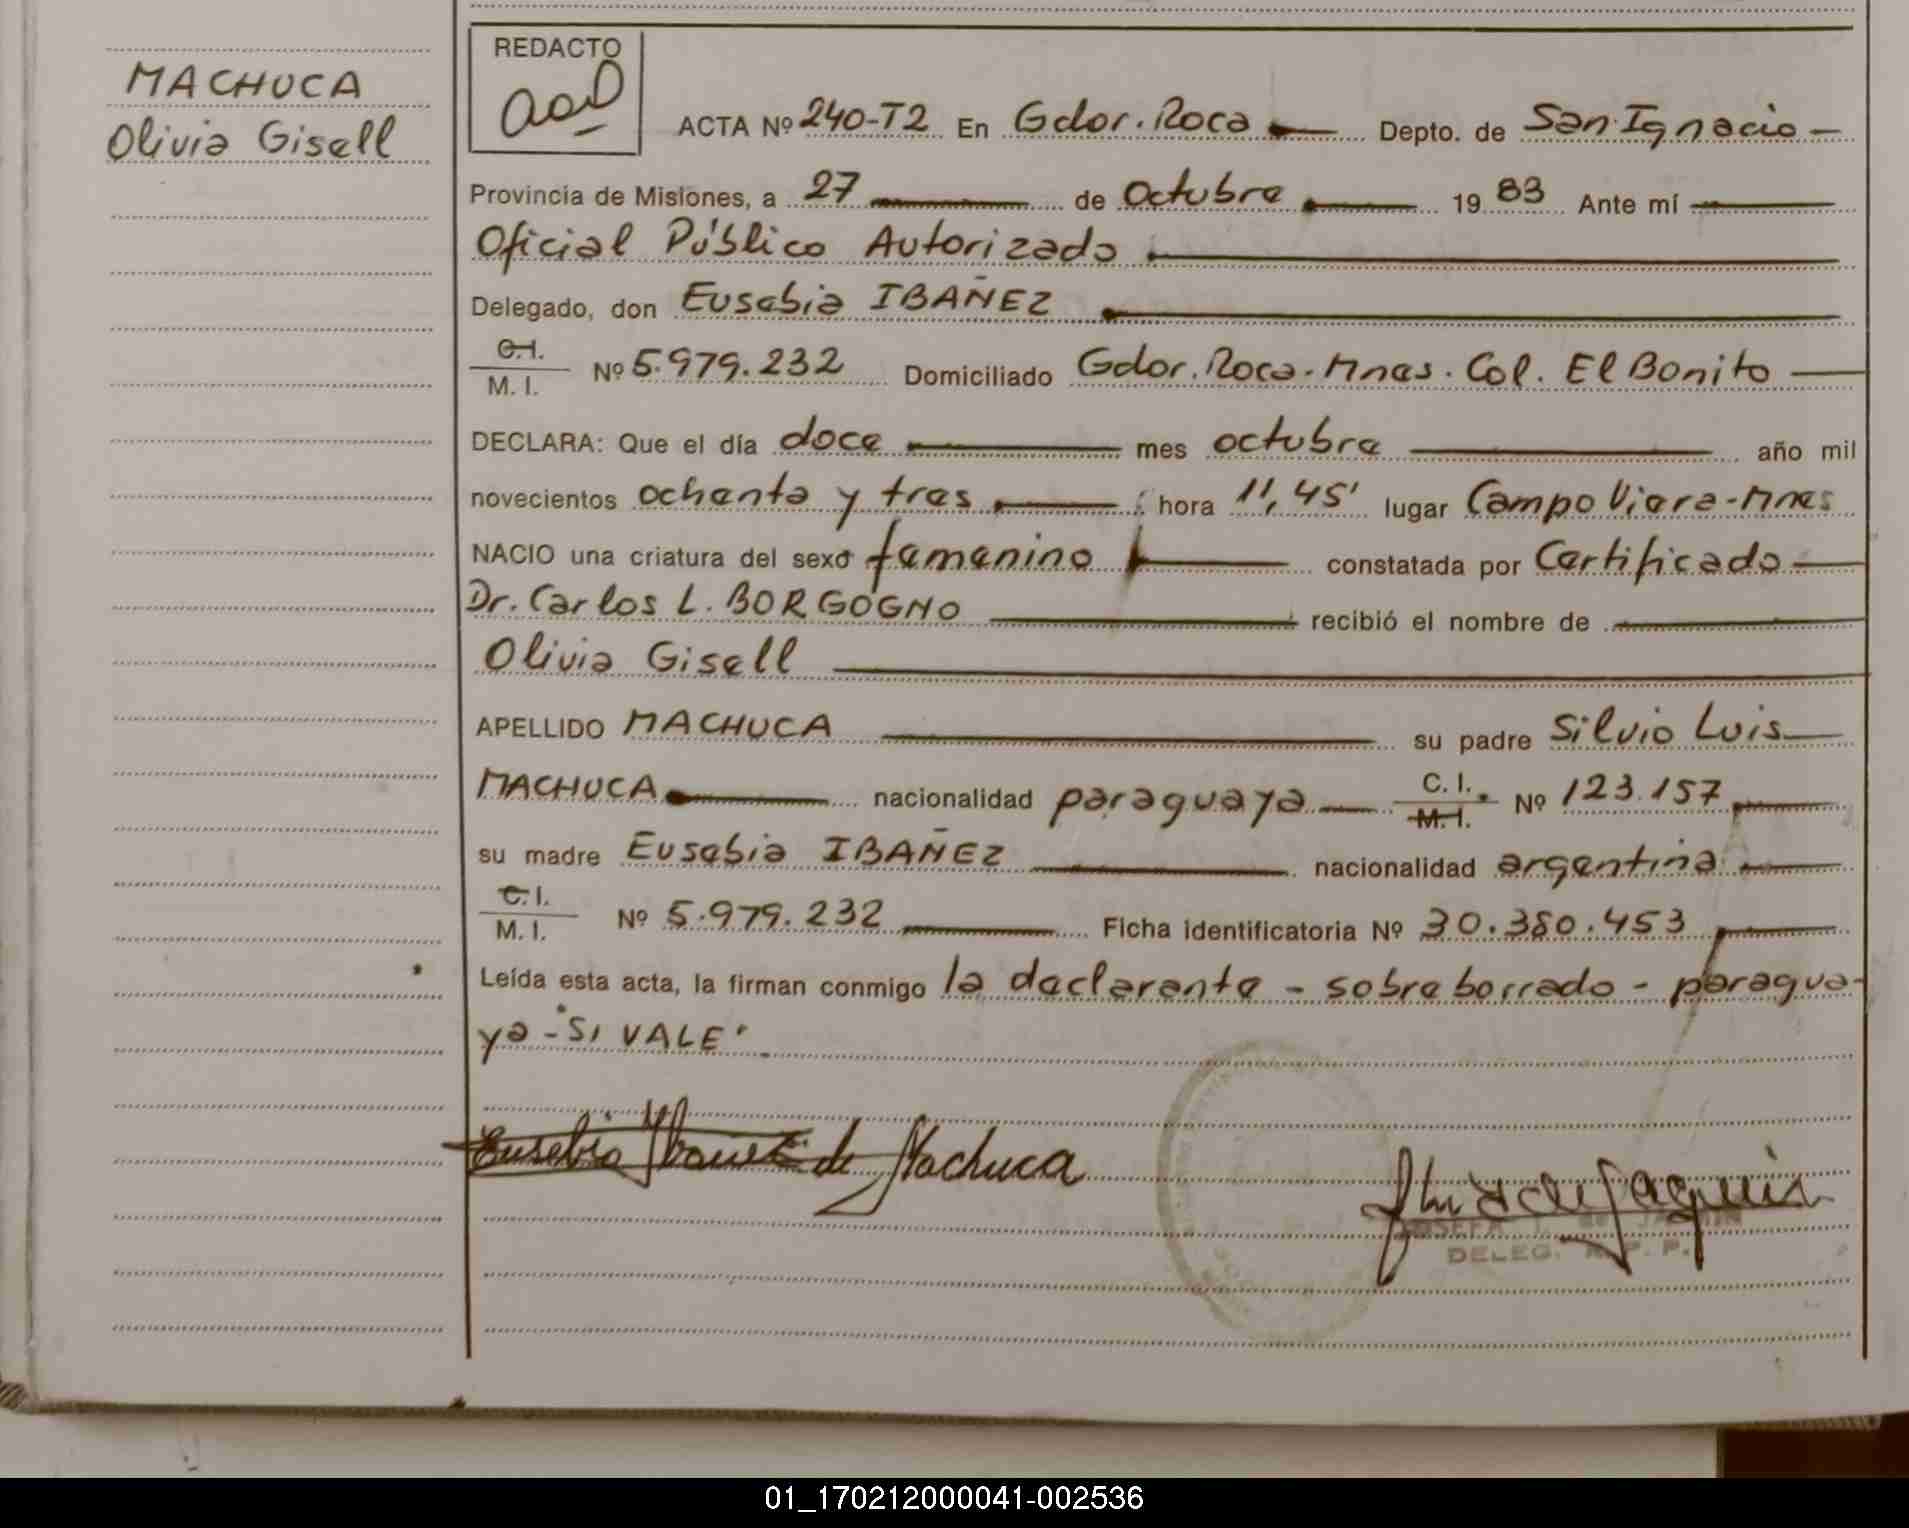 MACHUCA
Olivia Gisell
REDACTO
ACTA Nº 240-T2 En Gdor. Roca Depto. de San Ignacio
Provincia de Misiones, a 27 de Octubre 1983 Ante mí
Oficial Público Autorizado
Delegado, don Eusebia IBAÑEZ
C.I.
M. I. Nº 5.979.232 Domiciliado Gdor. Roca. Mnes. Col. El Bonito
DECLARA: Que el día doce mes octubre año mil
novecientos ochenta y tres hora 11,45' lugar Campo Viera-Mnes
NACIO una criatura del sexo femenino constatada por Certificado
Dr. Carlos L. BORGOGNO recibió el nombre de
Olivia Gisell
APELLIDO MACHUCA su padre Silvio Luis
MACHUCA nacionalidad paraguaya C. I. M. I. Nº 123.157
su madre Eusebia IBAÑEZ nacionalidad argentina
C. I.
M. I. Nº 5.979.232 Ficha identificatoria Nº 30.380.453
Leída esta acta, la firman conmigo la declarante - sobreborrado - paragua-
ya - "SI VALE"
Eusebia Ibañez de Machuca
JOSEFA I. de JAQUIN
DELEG. R. P. P.
01_170212000041-002536